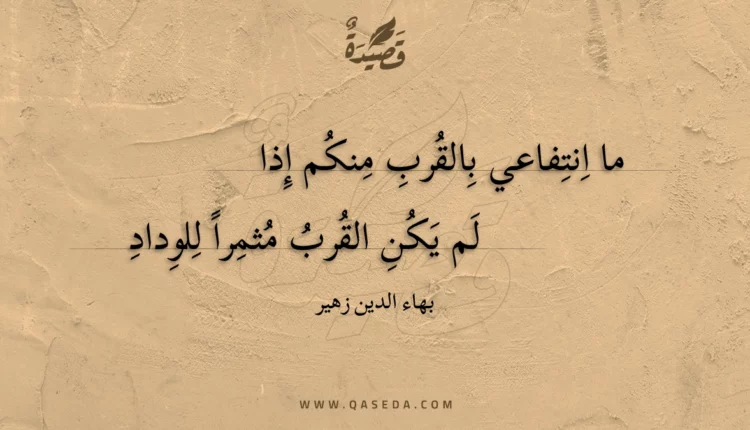 قَصِيْدَةٌ
ما اِنتِفاعي بِالقُربِ مِنكُم إِذا
لَم يَكُنِ القُربُ مُثمِراً لِلوِدادِ
بهاء الدين زهير
WWW.QASEDA.COM